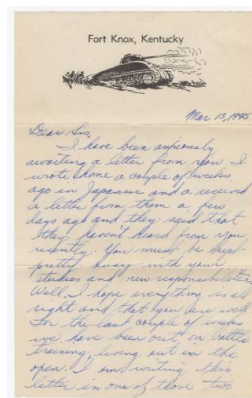 Fort Knox, Kentucky
Mar 13, 1945
Dear Sis,
I have been anxiously
awaiting a letter from you. I
wrote home a couple of weeks
ago in Japanese and a received
a letter from them a few
days ago and they said that
they haven't heard from you
recently. You must be kept
pretty busy with your
studies and new responsibilities.
Well I hope everything is all
right and that you are well
For the last couple of weeks
we have been out on battle
training, living out in the
open. I am writing this
letter in one of those two